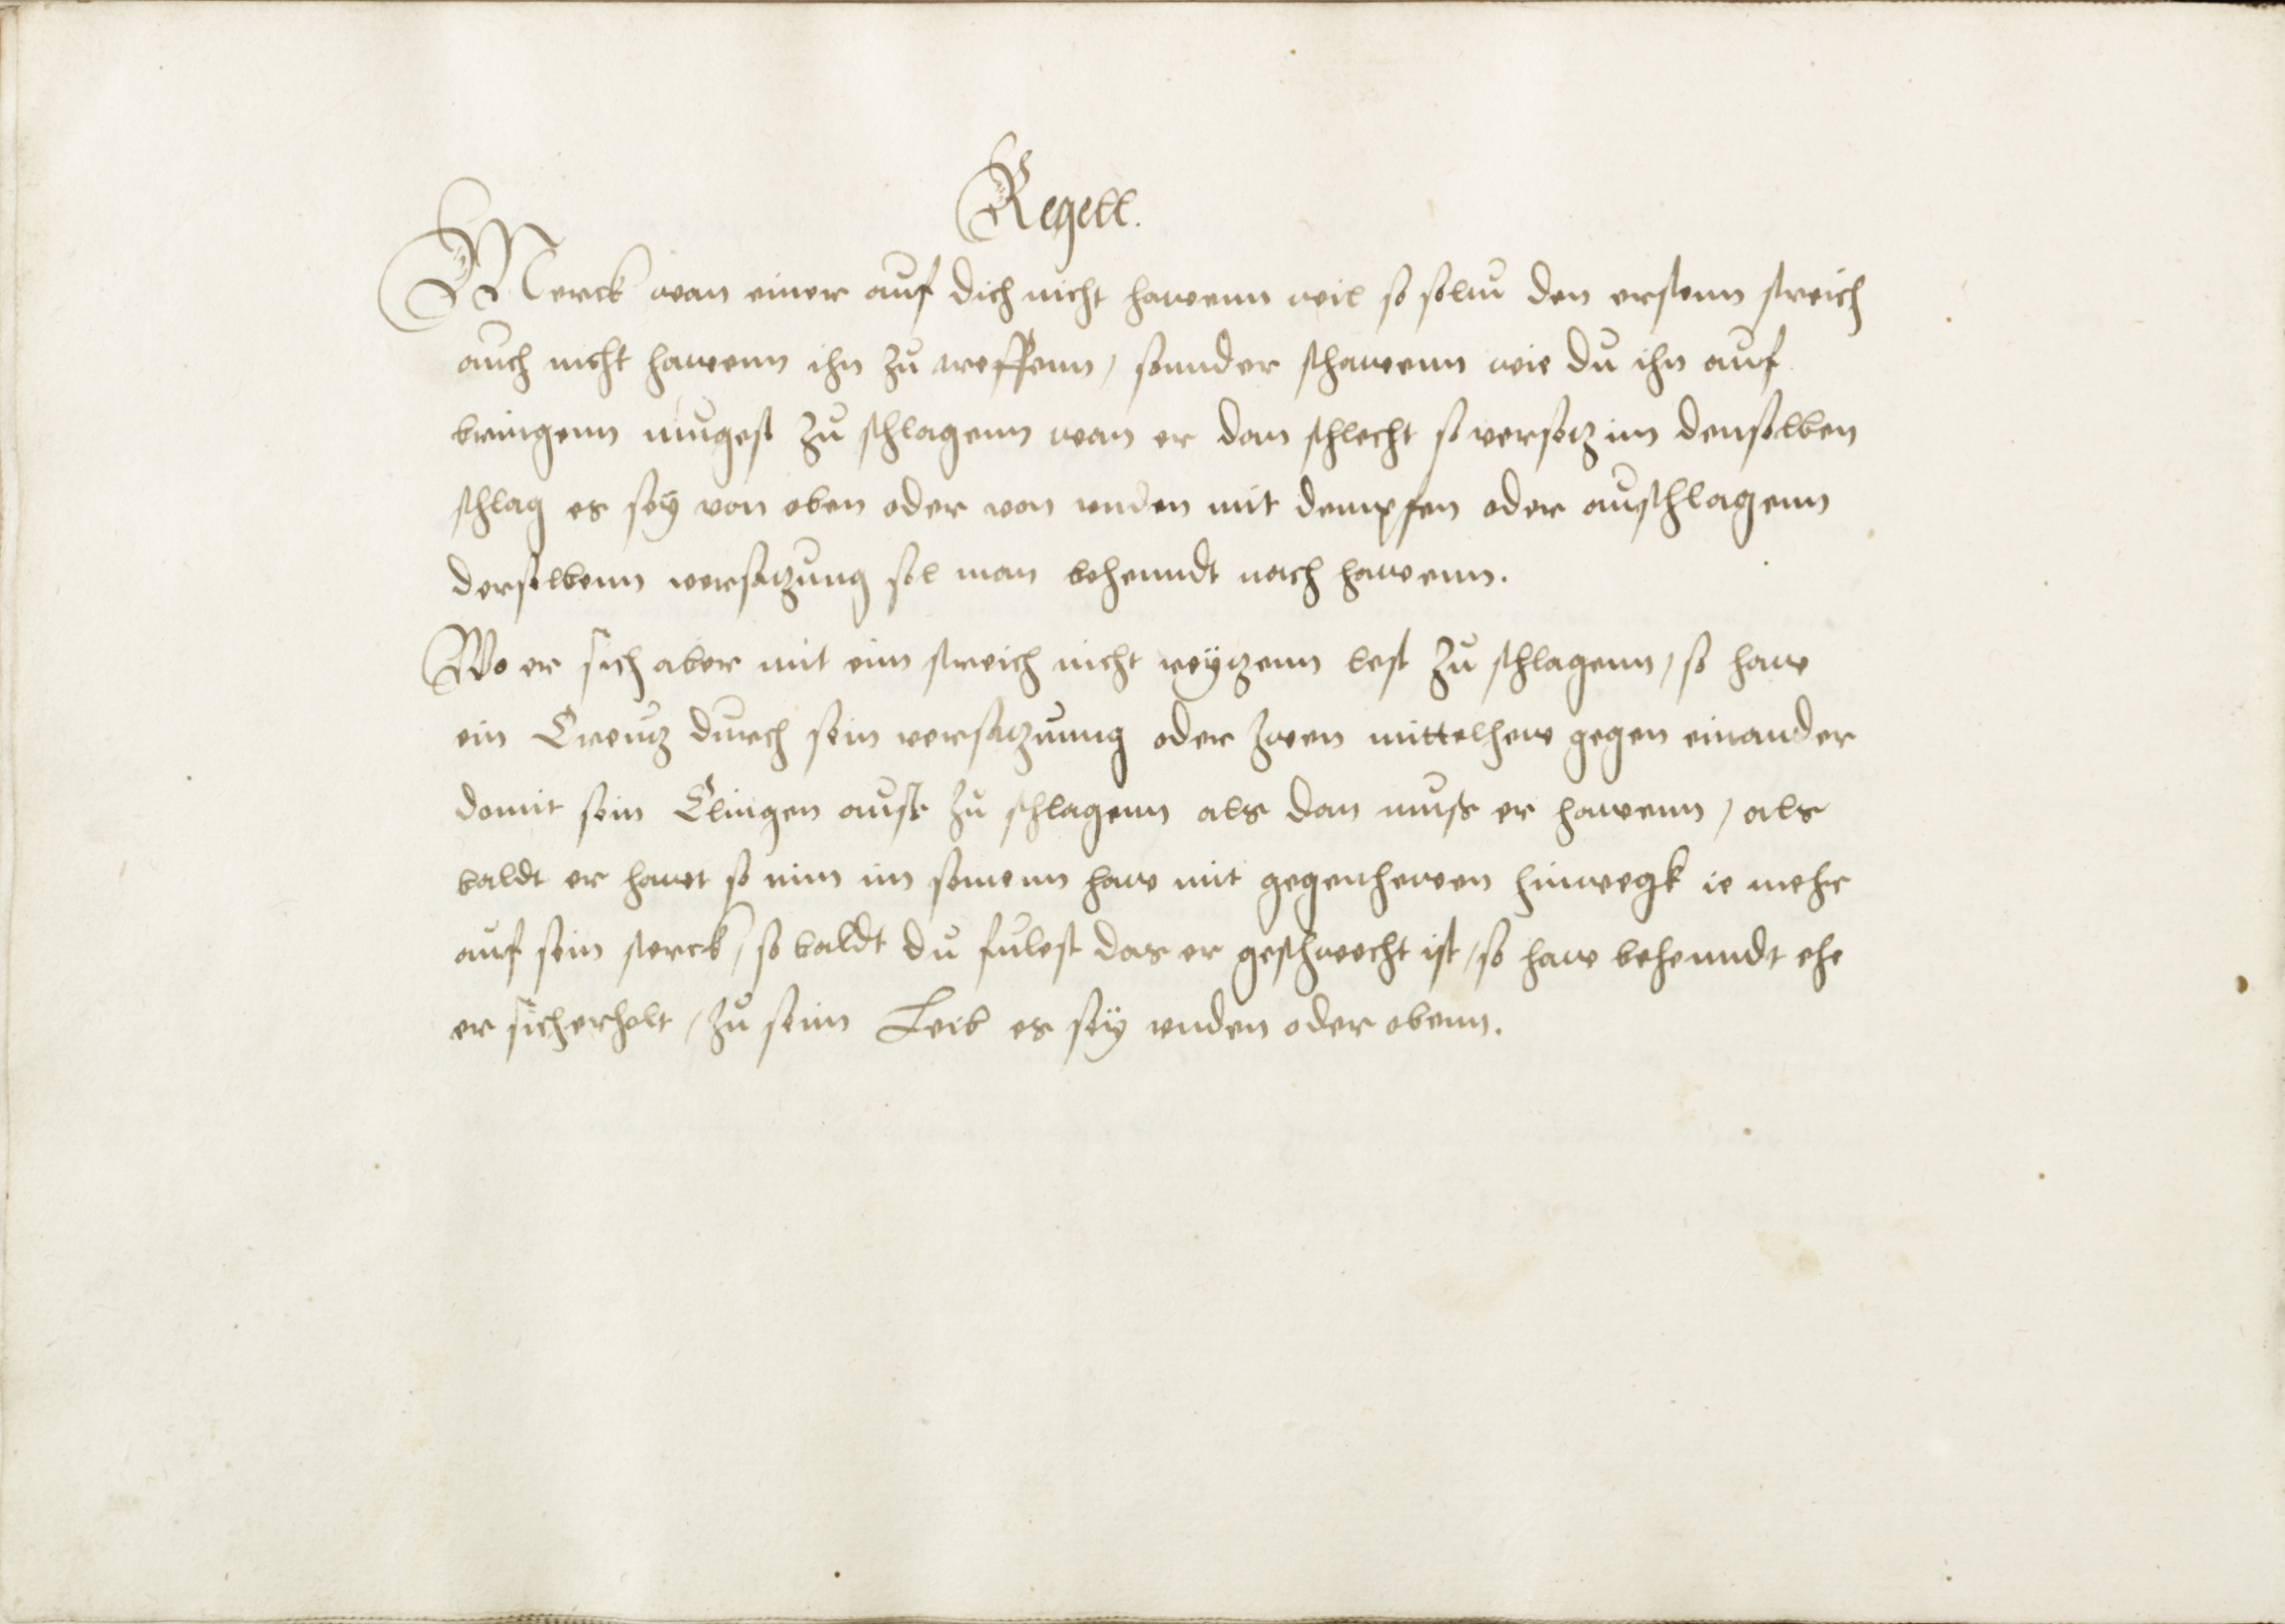 Regell.
Merck wan einer auf dich nicht hawenn wil so soltu den erstenn streich
auch nicht hawenn ihn zu treffenn, sonnder schawenn wie du ihn auf
bringenn mugest zu schlagenn wan er dan schlecht so versetz im denselben
schlag es sey von oben oder von unden mit dempfen oder auschlagenn
derselbenn versatzung sol man behenndt nach hawenn.
Wo er sich aber mit eim streich nicht reytzenn lest zu schlagenn, so haw
ein Creutz durch sein versatzunng oder zwen mittelhew gegen einander
domit sein Clingen auss zu schlagenn als dan muss er hawenn, als
baldt er hawt so nim im seinenn haw mit gegenhewen hinwegk ie mehr
auf sein sterck, so baldt du fulest das er geschwecht ist, so haw behenndt ehe
er sich erholt, zu seim Leib es sey unden oder obenn.